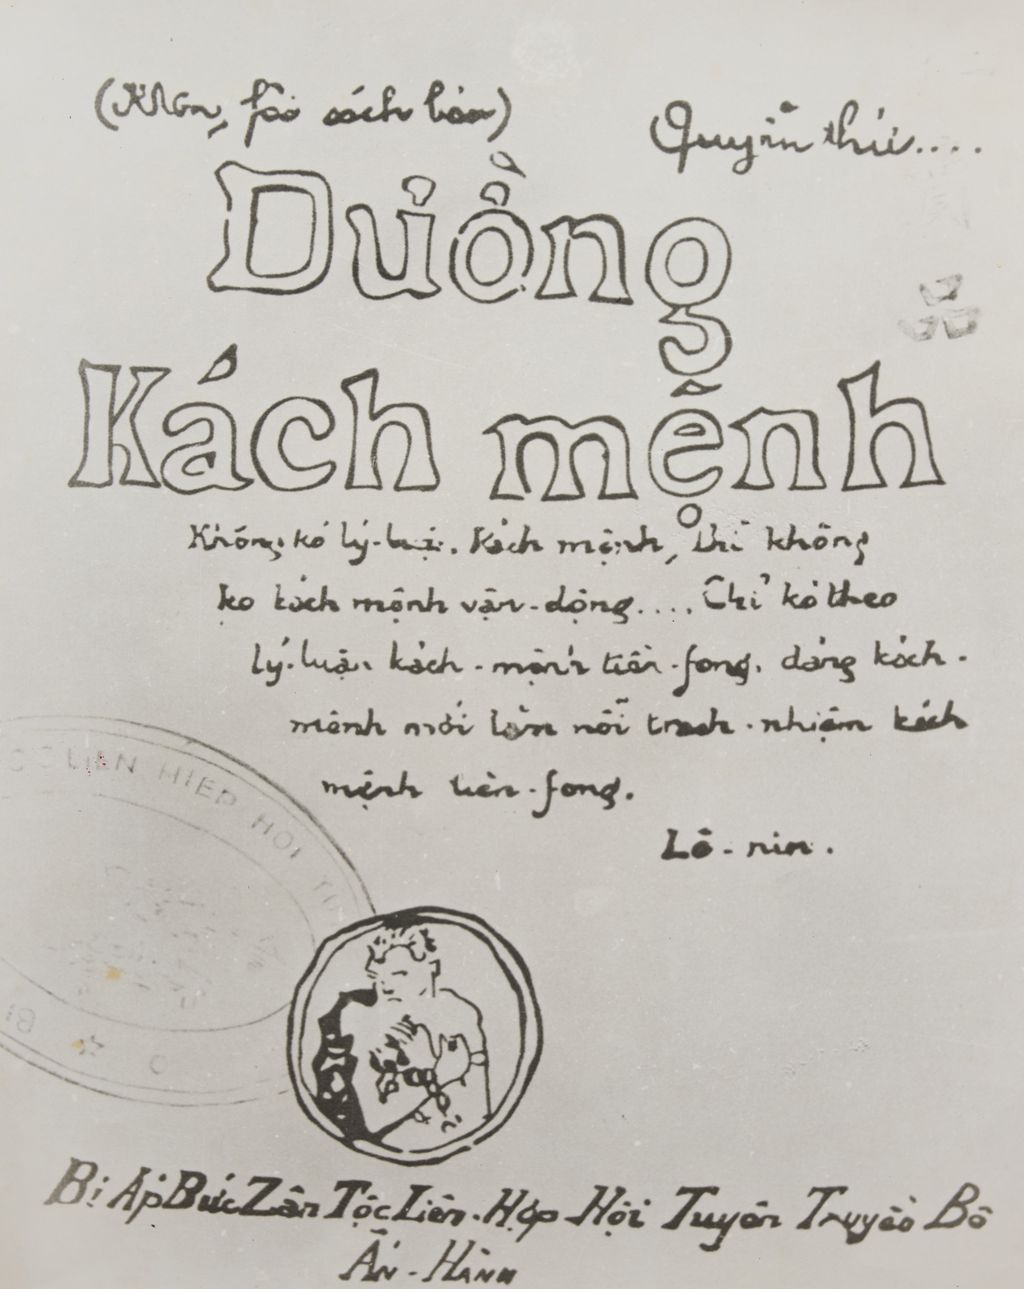 sách bán)
Quyển thứ....
Dường
Kách mệnh
Không kó lý-luận Kách mệnh, thì không
kó kách mệnh vận-dộng.... Chỉ kó theo
lý-luận kách-mệnh tiền-fong, dảng kách-
mệnh mới làm nổi trách-nhiệm kách
mệnh tiền-fong.
Lê-nin.
LIÊN HIỆP HỘI
BỊ
Bị Áp Bức Zân Tộc Liên-Hợp Hội Tuyên Truyền Bộ
Ấn-Hành